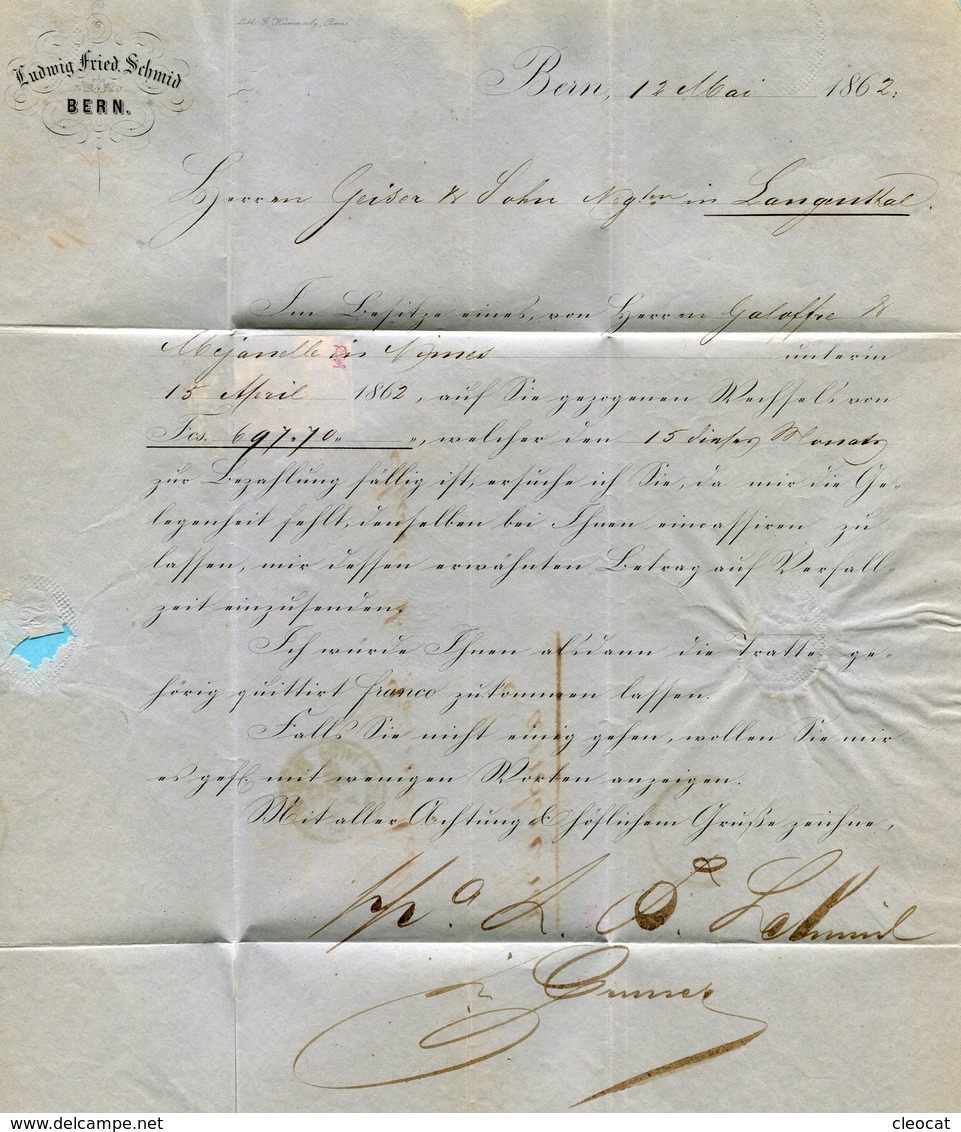 Lith. G. Kümmerly, Bern.
Ludwig Fried. Schmid
BERN.
Bern, 12 Mai 1862.
Herren Geiser & Sohn Negten in Langenthal.
Im Besitze eines, von Herren Galoffre &
Mejanelle in Nimes unterm
15 April 1862, auf Sie gezogenen Wechsels von
Fcs. 697.70 „ „, welcher den 15 dieses Monats
zur Bezahlung fällig ist, ersuche ich Sie, da mir die Ge-
legenheit fehlt, denselben bei Ihnen eincassiren zu
lassen, mir dessen erwähnten Betrag auf Verfall-
zeit einzusenden.
Ich würde Ihnen alsdann die Tratte ge-
hörig quittirt franco zukommen lassen.
Falls Sie nicht einig gehen, wollen Sie mir
es gefl. mit wenigen Worten anzeigen.
Mit aller Achtung & höflichem Gruße zeichne,
ppa L. F. Schmid
cleocat